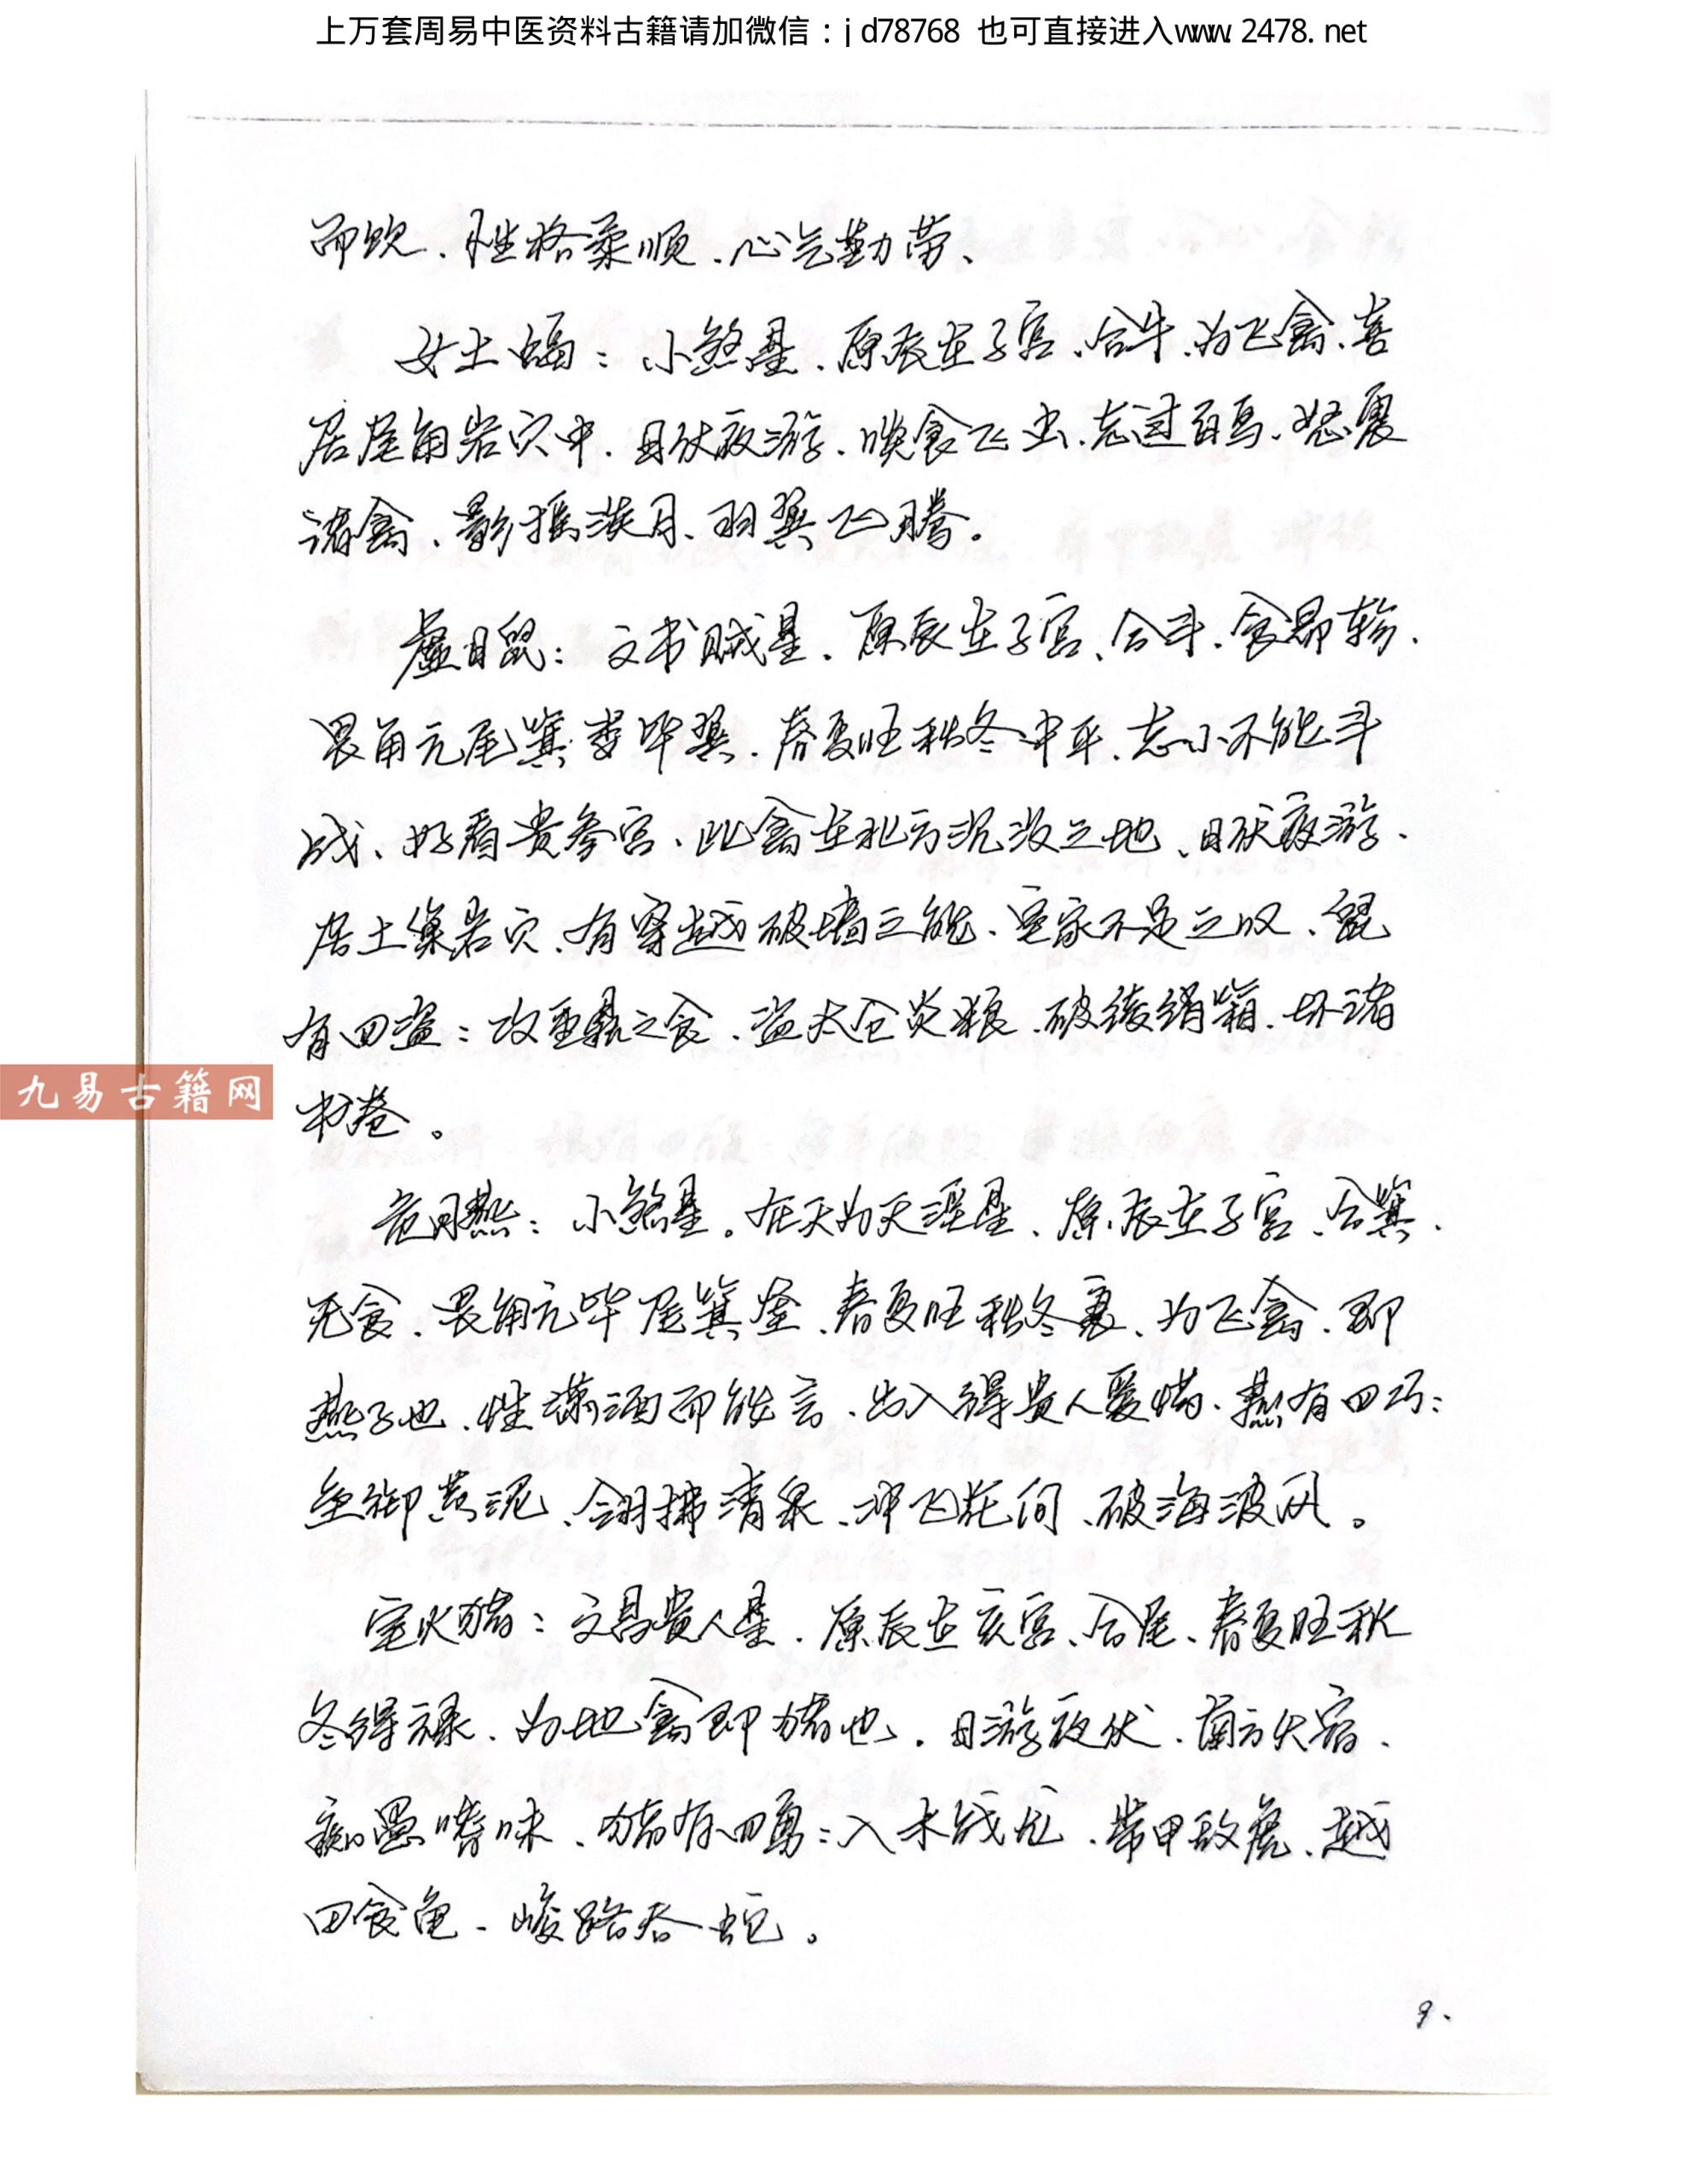 上万套周易中医资料古籍请加微信：jd78768 也可直接进入www.2478.net
而饮、性格柔顺、心气勤劳、
女土蝠：小煞星、原辰在子宫、合牛、为飞禽、喜
居屋角岩穴中、日伏夜游、唤食飞虫、志过百鸟、怒震
诸禽、影摇淡月、羽翼飞腾。
虚日鼠：文书贼星、原辰在子宫、合斗、食昴轸、
畏角亢尾箕娄毕翼、春夏旺秋冬中平、志小不能斗
战、好看贵参宫、此禽在北方沉没之地、日伏夜游、
居土巢岩穴、有穿越破墙之能、室家不足之叹、鼠
有四盗：改重鼎之食、盗太仓炎粮、破绫绢箱、坏诸
书卷。
危月燕：小煞星。在天为天淫星、原辰在子宫、合箕、
无食、畏角亢毕尾箕奎、春夏旺秋冬衰、为飞禽、即
燕子也、性潇洒而能言、出入得贵人爱怜、燕有四巧：
垒御黄泥、翎拂清泉、冲飞花间、破海波风。
室火猪：文昌贵人星、原辰在亥宫、合尾、春夏旺秋
冬得禄、为地禽即猪也、日游夜伏、南方火宿、
痴愚嗜味、猪有四勇：入水战龙、带甲敌虎、越
田食龟、峻路吞蛇。
9.
九易古籍网